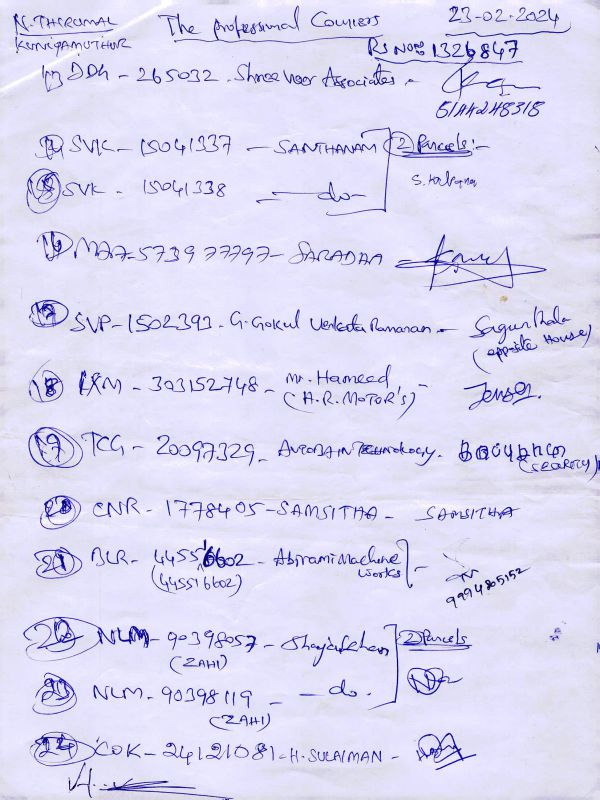 N. THIRUMAL The Professional Couriers 23-02-2024
KUNIYAMUTHUR RS NO: 1326847
13 DDG - 265032 - Shree Veer Associates -
6144248318
14 SVK - 15041337 - SANTHANAM 2 Parcels :-
15 SVK - 15041338 - do -
16 MAA - 573977797 - SARADAA =
17 SVP - 1502393 - G. Gokul Venkata Ramanan - Sagunthala
(opposite House)
18 LXM - 303152748 - Mr. Hameed - Jensi
(A.R. MOTOR'S)
19 TCG - 20097329 - AUTOBAIN Technology -
(SECURITY)
20 CNR - 1778405 - SAMSITHA - SAMSITHA
21 BLR - 445516602 - Abirami Machine works -
(445516602) 9994805152
22 NLM - 90398057 - Shajakhan 2 Parcels
(ZAHI)
23 NLM - 90398119 - do -
(ZAHI)
24 COK - 24121081 - H. SULAIMAN -